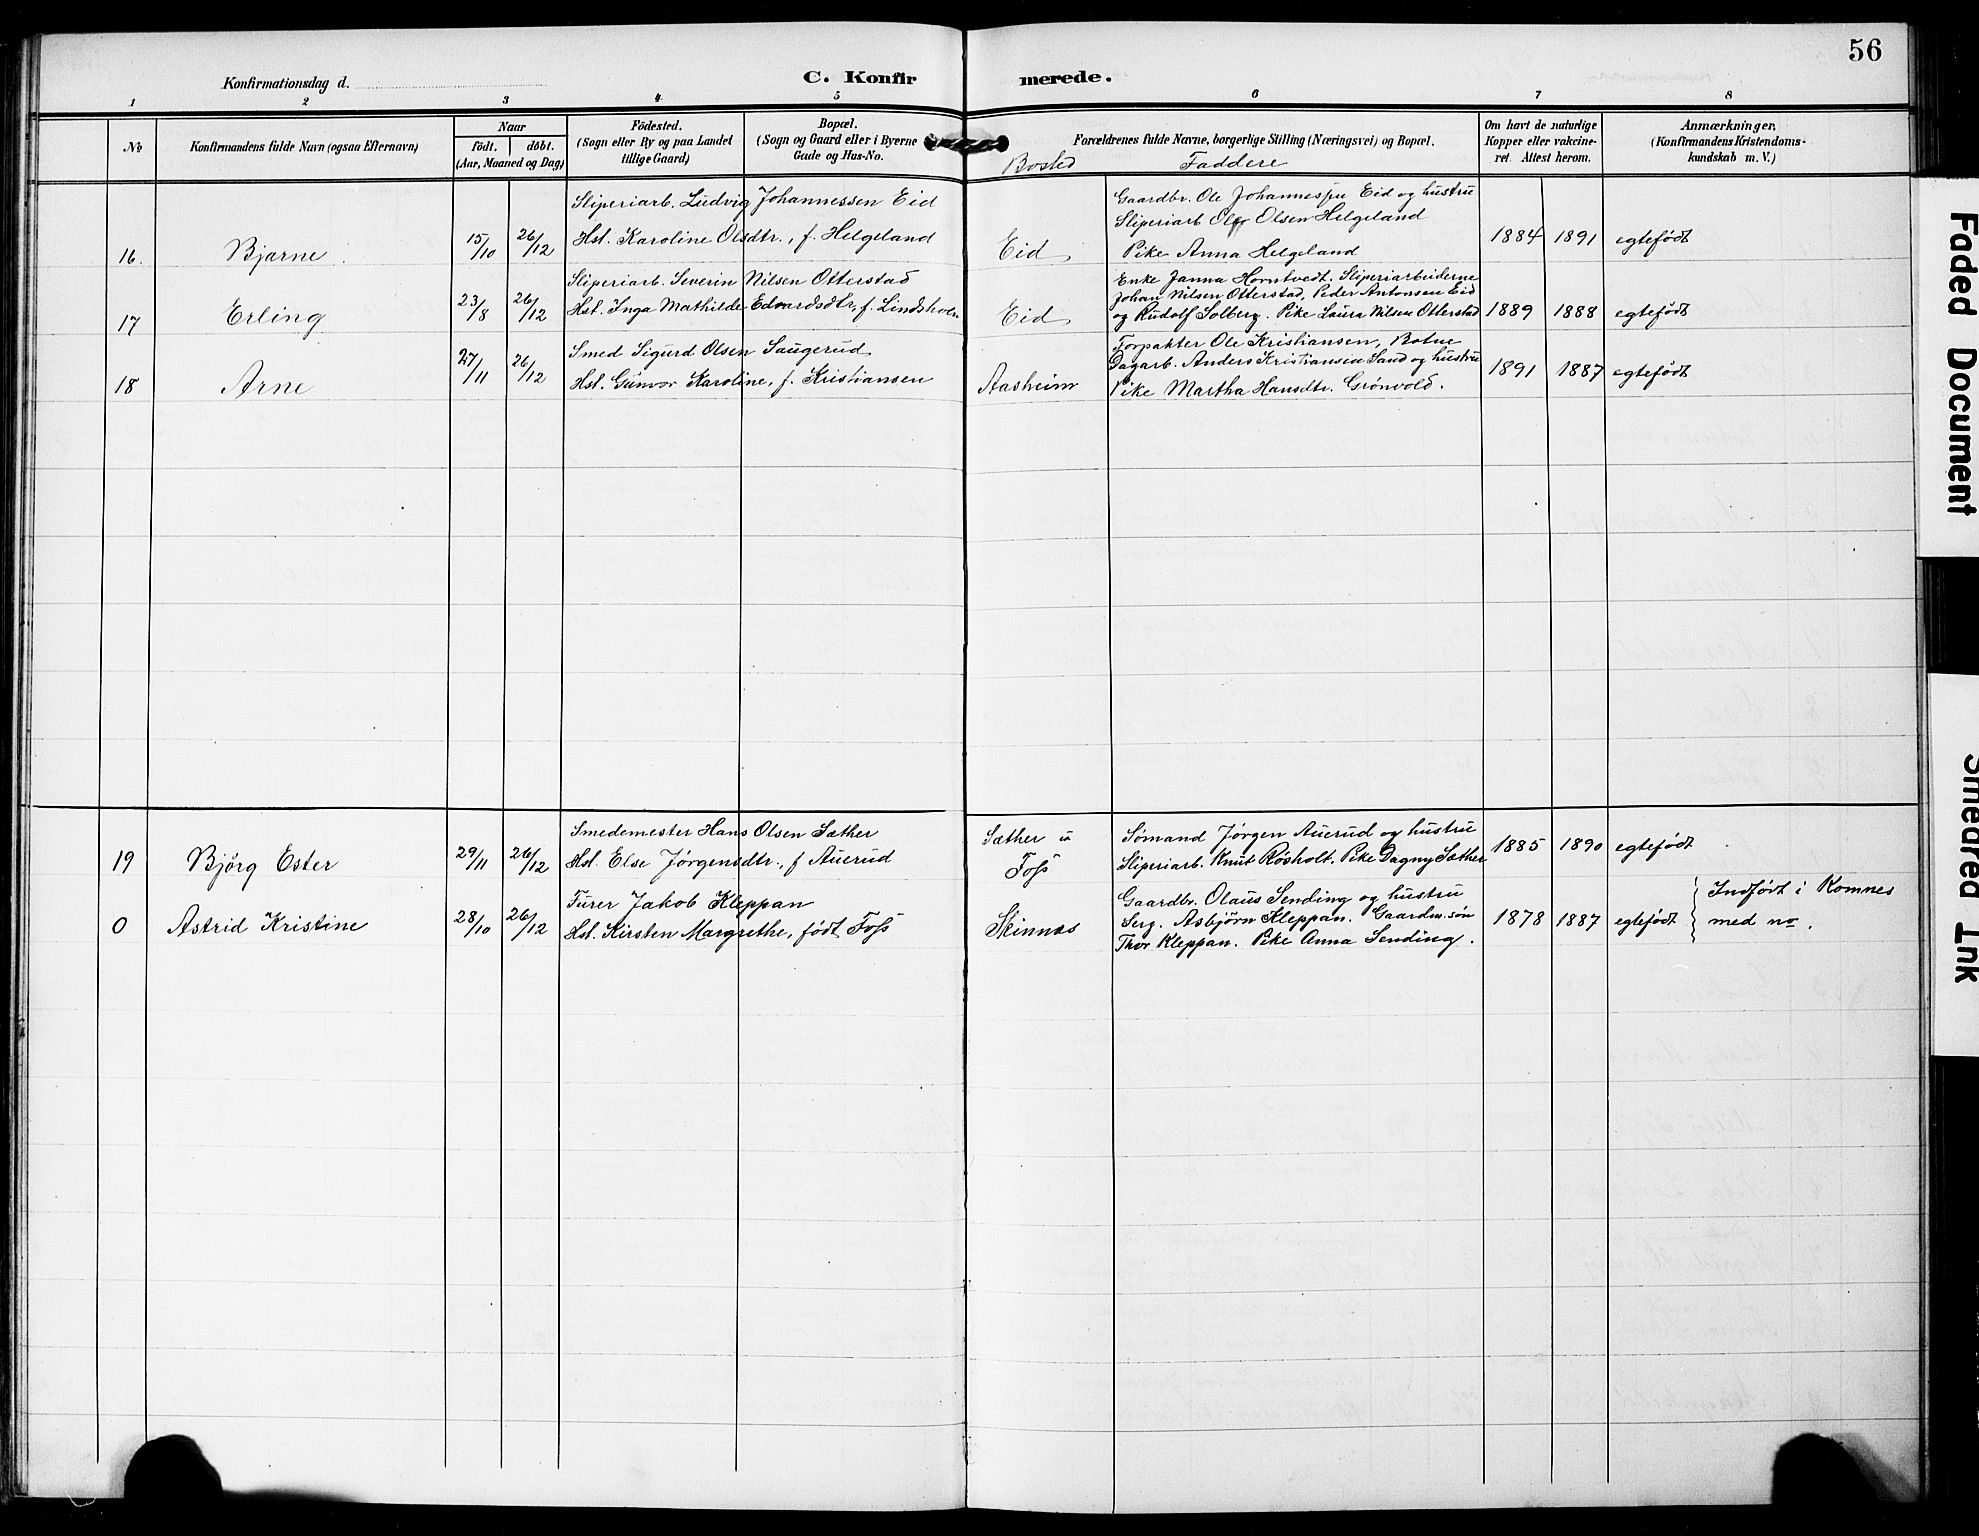 56
Konfirmationsdag d.
C. Konfirmerede.
1 2 3 4 5 6 7 8
No
Konfirmandens fulde Navn (ogsaa Efternavn)
Naar
födt. döbt.
(Aar, Maaned og Dag)
Födested.
(Sogn eller By og paa Landet
tillige Gaard)
Bopæl.
(Sogn og Gaard eller i Byerne
Gade og Hus-No.
Bosted
Forældrenes fulde Navne, borgerlige Stilling (Næringsvei) og Bopæl.
Faddere
Om havt de naturlige
Kopper eller vakcine-
ret. Attest herom.
Anmærkninger.
(Konfirmandens Kristendoms-
kundskab m. V.)
Sliperiarb. Ludvig Johannessen Eid
16. Bjarne. 15/10 26/12 Hst. Karoline Olsdtr., f. Helgeland
Eid
Gaardbr. Ole Johannessen Eid og hustru
Sliperiarb Olsen Helgeland
Pike Anna Helgeland
1884 1891 egtefödt
Sliperiarb. Severin Nilsen Otterstad
17 Erling 23/8 26/12 Hst. Inga Mathilde Edvardsdtr, f. Lindsholm
Eid
Enke Janna Horntvedt. Sliperiarbeiderne
Johan Nilsen Otterstad, Peder Antonsen Eid
og Rudolf Solberg. Pike Laura Nilsen Otterstad
1889 1888 egtefödt
Smed Sigurd Olsen Saugerud
18 Arne 27/11 26/12 Hst. Gunvor Karoline, f. Kristiansen
Aasheim
Forpakter Ole Kristiansen, Botne
Dagarb. Anders Kristiansen Sand og hustru
Pike Martha Hansdtr. Grönvold.
1891 1887 egtefödt
Smedemester Hans Olsen Sæther
19 Björg Ester 29/11 26/12 Hst. Else Jörgensdtr., f Auerud
Sæther u
Foss
Sömand Jörgen Auerud og hustru
Sliperiarb. Knut Rösholt. Pike Dagny Sæther
1885 1890 egtefödt
Furer Jakob Kleppan
0 Astrid Kristine 28/10 26/12 Hst. Kirsten Margrethe, födt Foss
Skinnæs
Gaardbr. Olaus Sending og hustru
Serg. Asbjörn Kleppan. Gaardm. sön
Thor Kleppan. Pike Anna Sending.
1878 1887 egtefödt
Indfört i Komnes
med no.
Faded Document
Smeared Ink